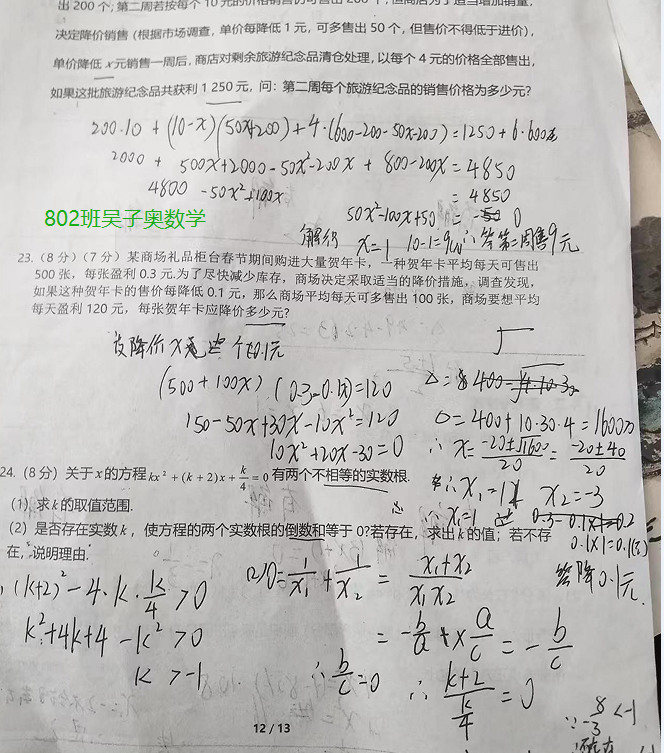 出 200 个；第二周若按每个 10 元的价格销售仍可售出 200 个，但商店为了适当增加销量，
决定降价销售（根据市场调查，单价每降低 1 元，可多售出 50 个，但售价不得低于进价），
单价降低 x 元销售一周后，商店对剩余旅游纪念品清仓处理，以每个 4 元的价格全部售出，
如果这批旅游纪念品共获利 1 250 元，问：第二周每个旅游纪念品的销售价格为多少元？
200·10 + (10-x)(50x+200)+4·(600-200-50x-200)=1250+6·600
2000 + 500x+2000-50x²-200x + 800-200x = 4850
4800 -50x²+100x = 4850
802班吴子奥数学
50x²-100x+50 = 0
x=1 10-1=9元 ∴答第二周售9元
23.（8 分）（7 分）某商场礼品柜台春节期间购进大量贺年卡，一种贺年卡平均每天可售出
500 张，每张盈利 0.3 元.为了尽快减少库存，商场决定采取适当的降价措施，调查发现，
如果这种贺年卡的售价每降低 0.1 元，那么商场平均每天可多售出 100 张，商场要想平均
每天盈利 120 元，每张贺年卡应降价多少元？
设降价x个0.1元
(500+100x)(0.3-0.1x)=120
150-50x+30x-10x²=120
10x²+20x-30=0
Δ=400+10·30·4=1600>0
∴ x=-20±√1600/20=-20±40/20
∴x₁=1 x₂=-3
∴x₁=1
0.1×1=0.1(元)
答降0.1元.
24.（8 分）关于 x 的方程 kx²+(k+2)x+k/4=0 有两个不相等的实数根.
（1）求 k 的取值范围.
（2）是否存在实数 k，使方程的两个实数根的倒数和等于 0？若存在，求出 k 的值；若不存
在，说明理由.
(k+2)²-4·k·k/4>0
k²+4k+4-k²>0
k>-1
(2)0=1/x₁+1/x₂=x₁+x₂/x₁x₂
=-b/a×a/c=-b/c
∴b/c=0 ∴k+2/k/4=0
12 / 13